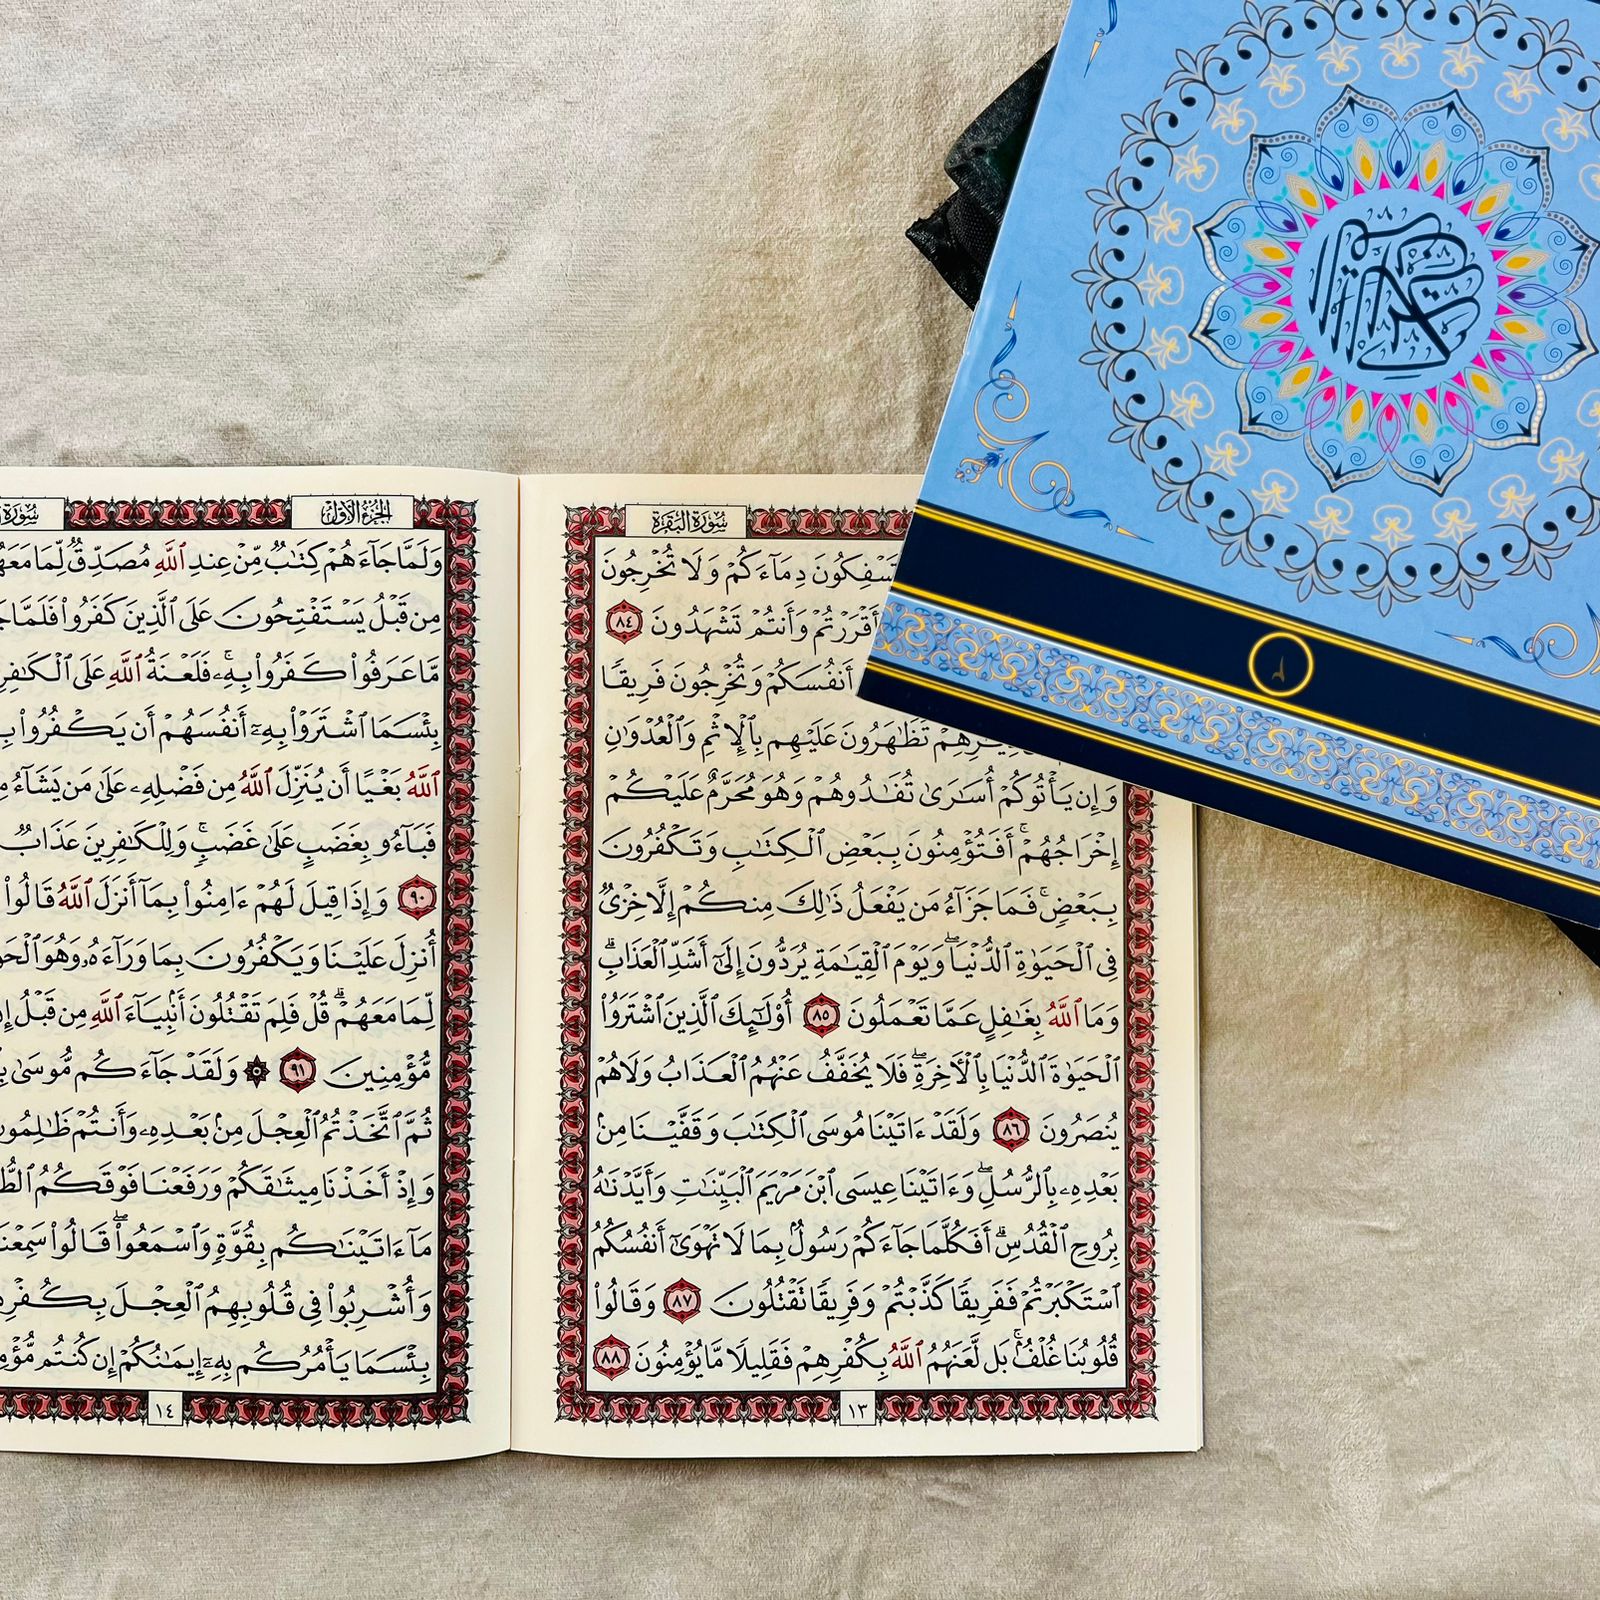 سُورَةُ البَقَرَةِ
تَسْفِكُونَ دِمَآءَكُمْ وَلَا تُخْرِجُونَ
أَقْرَرْتُمْ وَأَنتُمْ تَشْهَدُونَ ٨٤
أَنفُسَكُمْ وَتُخْرِجُونَ فَرِيقًا
تَظَٰهَرُونَ عَلَيْهِم بِٱلْإِثْمِ وَٱلْعُدْوَٰنِ
وَإِن يَأْتُوكُمْ أُسَٰرَىٰ تُفَٰدُوهُمْ وَهُوَ مُحَرَّمٌ عَلَيْكُمْ
إِخْرَاجُهُمْۚ أَفَتُؤْمِنُونَ بِبَعْضِ ٱلْكِتَٰبِ وَتَكْفُرُونَ
بِبَعْضٍۚ فَمَا جَزَآءُ مَن يَفْعَلُ ذَٰلِكَ مِنكُمْ إِلَّا خِزْىٌ
فِى ٱلْحَيَوٰةِ ٱلدُّنْيَاۖ وَيَوْمَ ٱلْقِيَٰمَةِ يُرَدُّونَ إِلَىٰٓ أَشَدِّ ٱلْعَذَابِۗ
وَمَا ٱللَّهُ بِغَٰفِلٍ عَمَّا تَعْمَلُونَ ٨٥ أُو۟لَٰٓئِكَ ٱلَّذِينَ ٱشْتَرَوُا۟
ٱلْحَيَوٰةَ ٱلدُّنْيَا بِٱلْءَاخِرَةِۖ فَلَا يُخَفَّفُ عَنْهُمُ ٱلْعَذَابُ وَلَا هُمْ
يُنصَرُونَ ٨٦ وَلَقَدْ ءَاتَيْنَا مُوسَى ٱلْكِتَٰبَ وَقَفَّيْنَا مِنۢ
بَعْدِهِۦ بِٱلرُّسُلِۖ وَءَاتَيْنَا عِيسَى ٱبْنَ مَرْيَمَ ٱلْبَيِّنَٰتِ وَأَيَّدْنَٰهُ
بِرُوحِ ٱلْقُدُسِۗ أَفَكُلَّمَا جَآءَكُمْ رَسُولٌۢ بِمَا لَا تَهْوَىٰٓ أَنفُسُكُمُ
ٱسْتَكْبَرْتُمْ فَفَرِيقًا كَذَّبْتُمْ وَفَرِيقًا تَقْتُلُونَ ٨٧ وَقَالُوا۟
قُلُوبُنَا غُلْفٌۢۚ بَل لَّعَنَهُمُ ٱللَّهُ بِكُفْرِهِمْ فَقَلِيلًا مَّا يُؤْمِنُونَ ٨٨
١٣
الجُزْءُ الأَوَّلُ
سُورَةُ
وَلَمَّا جَآءَهُمْ كِتَٰبٌ مِّنْ عِندِ ٱللَّهِ مُصَدِّقٌ لِّمَا مَعَهُمْ
مِن قَبْلُ يَسْتَفْتِحُونَ عَلَى ٱلَّذِينَ كَفَرُوا۟ فَلَمَّا
مَّا عَرَفُوا۟ كَفَرُوا۟ بِهِۦۚ فَلَعْنَةُ ٱللَّهِ عَلَى
بِئْسَمَا ٱشْتَرَوْا۟ بِهِۦٓ أَنفُسَهُمْ أَن يَكْفُرُوا۟
ٱللَّهُ بَغْيًا أَن يُنَزِّلَ ٱللَّهُ مِن فَضْلِهِۦ عَلَىٰ مَن يَشَآءُ
فَبَآءُو بِغَضَبٍ عَلَىٰ غَضَبٍۚ وَلِلْكَٰفِرِينَ عَذَابٌ
٩٠ وَإِذَا قِيلَ لَهُمْ ءَامِنُوا۟ بِمَآ أَنزَلَ ٱللَّهُ قَالُوا۟
أُنزِلَ عَلَيْنَا وَيَكْفُرُونَ بِمَا وَرَآءَهُۥ وَهُوَ
لِّمَا مَعَهُمْۗ قُلْ فَلِمَ تَقْتُلُونَ أَنۢبِيَآءَ ٱللَّهِ مِن قَبْلُ
مُّؤْمِنِينَ ٩١ وَلَقَدْ جَآءَكُم مُّوسَىٰ
ثُمَّ ٱتَّخَذْتُمُ ٱلْعِجْلَ مِنۢ بَعْدِهِۦ وَأَنتُمْ ظَٰلِمُونَ
وَإِذْ أَخَذْنَا مِيثَٰقَكُمْ وَرَفَعْنَا فَوْقَكُمُ
مَآ ءَاتَيْنَٰكُم بِقُوَّةٍ وَٱسْمَعُوا۟ۖ قَالُوا۟ سَمِعْنَا
وَأُشْرِبُوا۟ فِى قُلُوبِهِمُ ٱلْعِجْلَ بِكُفْرِهِمْ
بِئْسَمَا يَأْمُرُكُم بِهِۦٓ إِيمَٰنُكُمْ إِن كُنتُم
١٤
١